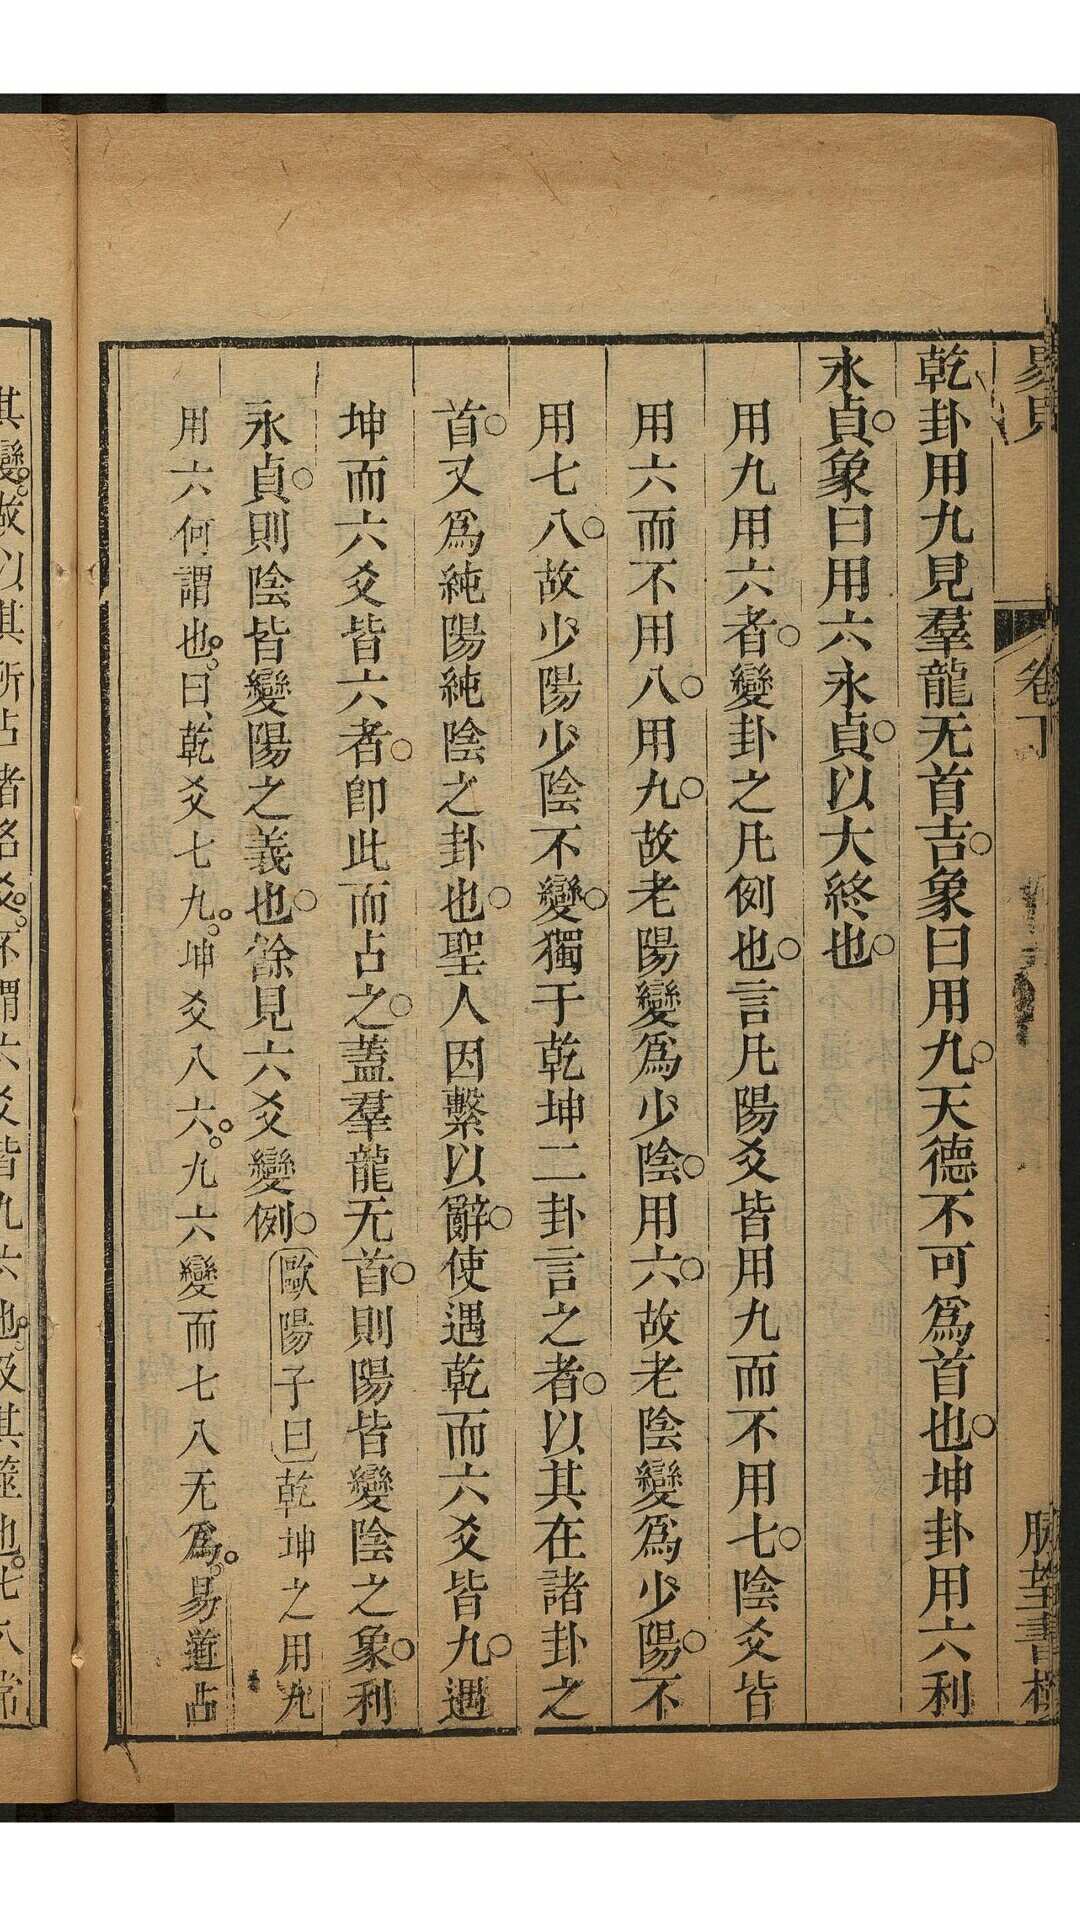 卷下
乾卦用九見羣龍无首吉○象曰用九○天德不可爲首也○坤卦用六利
永貞○象曰用六永貞○以大終也○
用九用六者○變卦之凡例也○言凡陽爻皆用九而不用七○陰爻皆
用六而不用八○用九○故老陽變爲少陰○用六○故老陰變爲少陽○不
用七八○故少陽少陰不變○獨于乾坤二卦言之者○以其在諸卦之
首○又爲純陽純陰之卦也○聖人因繫以辭○使遇乾而六爻皆九○遇
坤而六爻皆六者○卽此而占之○蓋羣龍无首○則陽皆變陰之象○利
永貞○則陰皆變陽之義也○餘見六爻變例○歐陽子曰乾坤之用九
用六何謂也。曰、乾爻七九。坤爻八六。九六變而七八无爲。易道占
其變。故以其所占者名爻。不謂六爻皆九六也。及其筮也。七八常